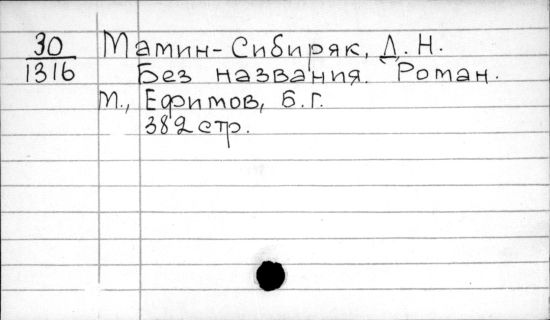 30
1316
Мамин-Сибиряк, Д. Н.
Без названия. Роман.
М., Ефимов, б. г.
382 стр.